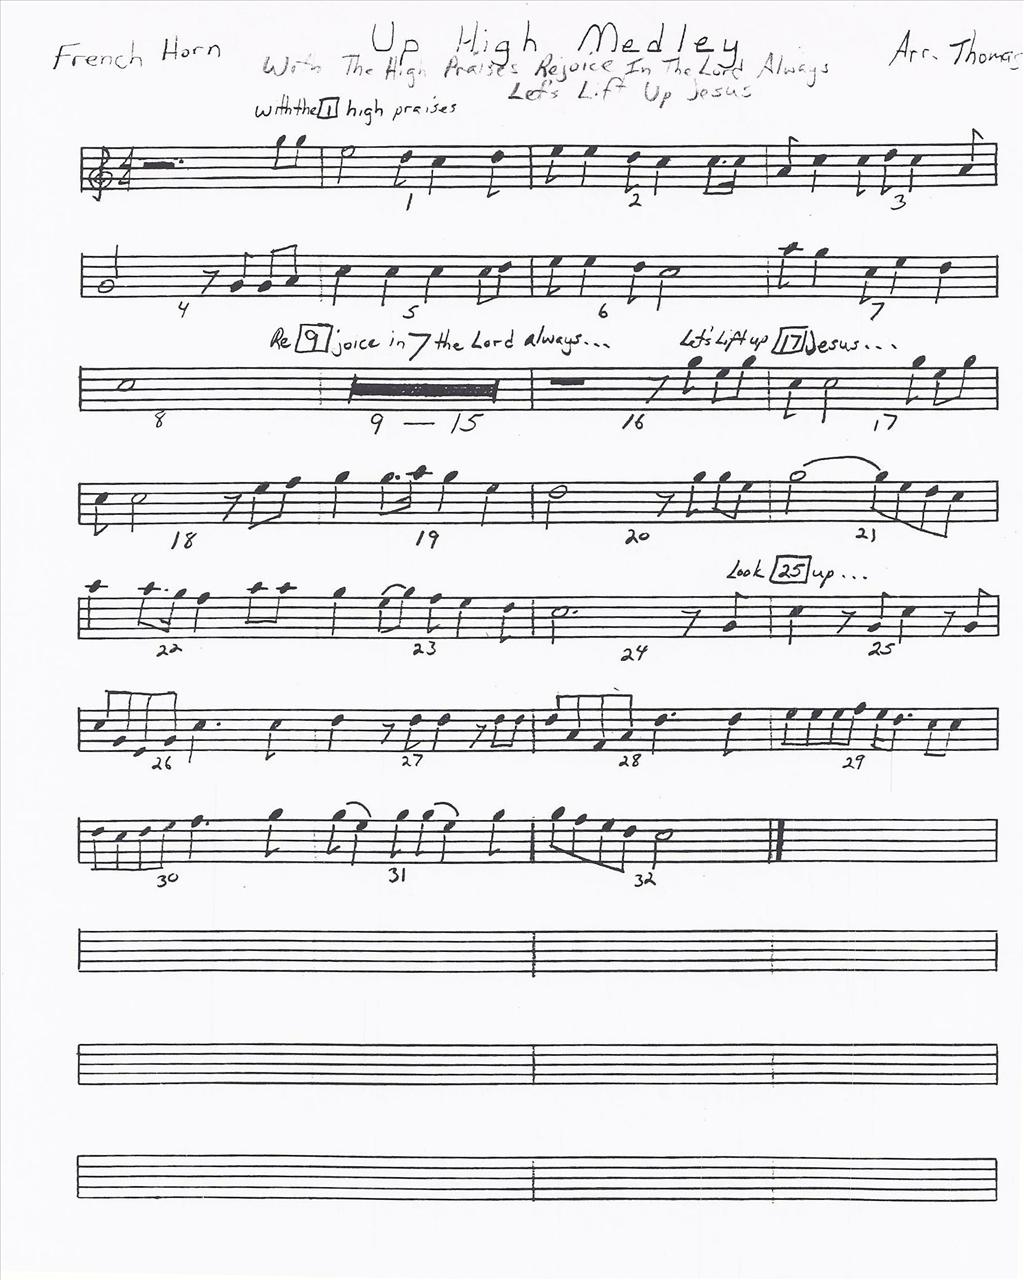 French Horn
Up High Medley
Arr. Thomas
With The High Praises Rejoice In The Lord Always
Let's Lift Up Jesus
with the 1 high praises
1 2 3
4 5 6 7
Re 9 joice in 7 the Lord always...
Let's Lift up 17 Jesus...
8 9 — 15 16 17
18 19 20 21
Look 25 up...
22 23 24 25
26 27 28 29
30 31 32